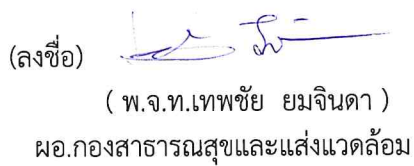 (ลงชื่อ)
( พ.จ.ท.เทพชัย ยมจินดา )
ผอ.กองสาธารณสุขและแส่งแวดล้อม